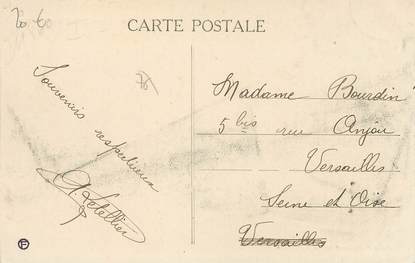 20.60
CARTE POSTALE
Souvenirs respectueux
A. Letellier
Madame Bourdin
5 bis rue Anjou
Versailles
Seine et Oise
Versailles